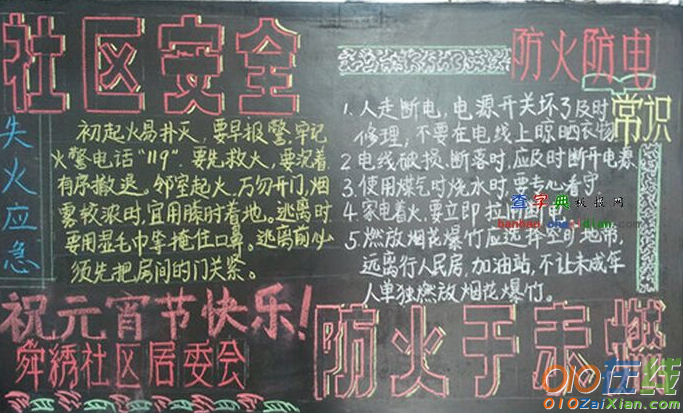 社区安全
失火应急
初起火易扑灭，要早报警，牢记
火警电话“119”。要先救火，要沉着
有序撤退。邻室起火，万勿开门，烟
雾较浓时，宜用膝肘着地。逃离时
要用湿毛巾等掩住口鼻。逃离前必
须先把房间的门关紧。
祝元宵节快乐！
舜绣社区居委会
防火防电
常识
1. 人走断电，电源开关坏了及时
修理，不要在电线上晾晒衣物
2 电线破损、断落时，应及时断开电源
3. 使用煤气时烧水时，要专心看守.
4. 家电着火，要立即拉闸断电.
5. 燃放烟花爆竹应选择空旷地带，
远离行人民房，加油站，不让未成年
人单独燃放烟花爆竹。
防火于未燃
查字典
010在线
010ZaiXian.com